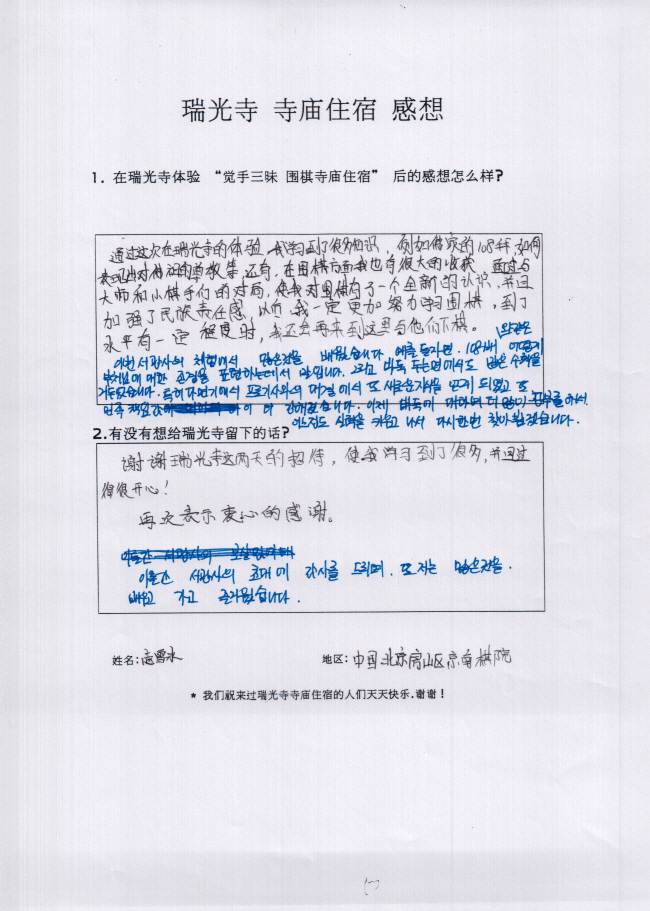 瑞光寺 寺庙住宿 感想
1. 在瑞光寺体验 “觉手三昧 围棋寺庙住宿” 后的感想怎么样?
通过这次在瑞光寺的体验 我学到了很多知识, 例如佛家的108拜 如何
表现出对佛祖的尊敬等 还有, 在围棋方面我也有很大的收获, 通过与
大师和小棋手们的对局, 使我对围棋有了一个全新的认识, 并且
加强了民族责任感, 以后我一定更加努力学习围棋, 到了
水平有一定 程度时, 我还会再来到这里与他们下棋。
이번 서광사의 체험에서 많은것을 배웠습니다. 예를들자면. 108배 어떻게
부처님에 대한 존경을 표현하는데서 말입니다. 그리고 바둑 두는면에서도 많은 수확을
거두었습니다. 특히 대결에서 또 새로운 되었고 또
민족 책임감 이 더 강해졌습니다. 이제 바둑에 대하여 더 많이 공부를 하여서
어느정도 실력을 키우고 나서 다시한번 찾아 뵙겠습니다.
2.有没有想给瑞光寺留下的话?
谢谢瑞光寺这两天的招待, 使我学习到了很多, 并且过
得很开心!
再次表示衷心的感谢。
이틀간 서광사의 초대에 감사를 드리며. 또 저는 많은것을.
배우고 가고 즐거웠습니다.
姓名: 地区: 中国北京房山区京南棋院
* 我们祝来过瑞光寺寺庙住宿的人们天天快乐.谢谢!